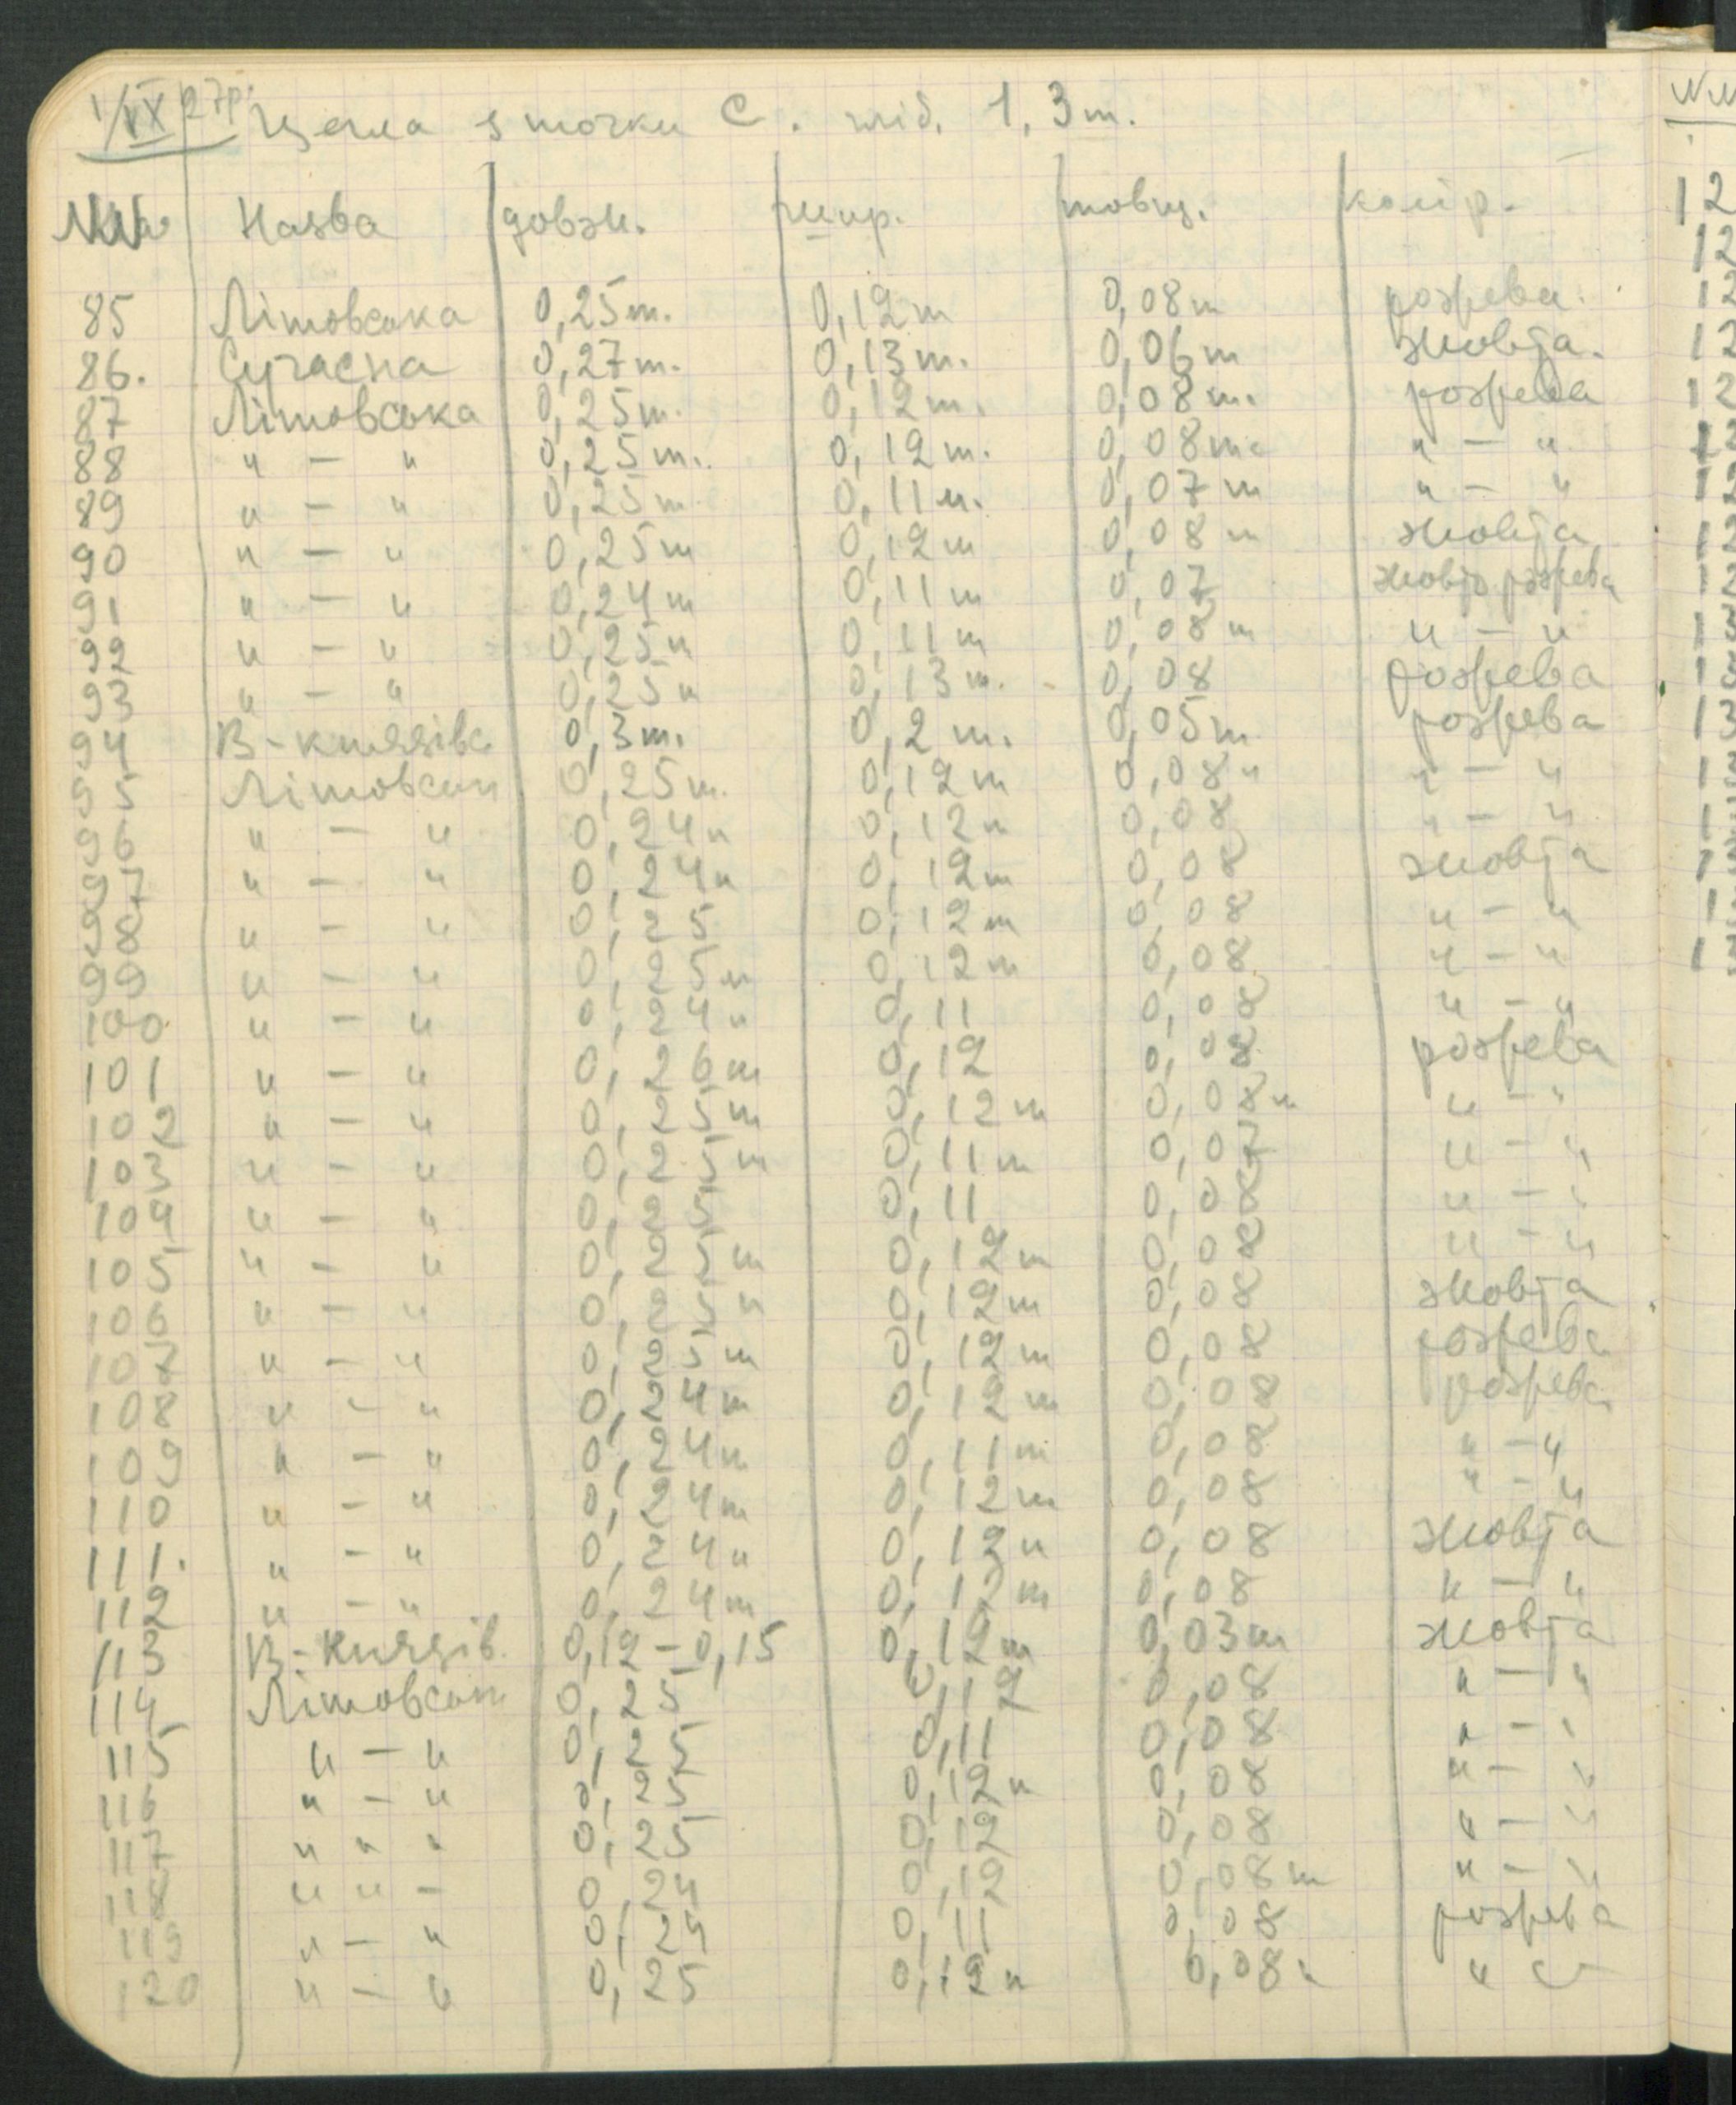 1/IX 27р. Цегла з точки С. глиб. 1,3 m.
№№ Назва довж. шир. товщ. колір.
85 Літовська 0,25 m. 0,12 m 0,08 m рожева.
86. Сучасна 0,27 m. 0,13 m. 0,06 m жовта.
87 Літовська 0,25 m. 0,12 m. 0,08 m. рожева
88 " — " 0,25 m. 0,12 m. 0,08 m. " — "
89 " — " 0,25 m 0,11 m. 0,07 m " — "
90 " — " 0,25 m 0,12 m 0,08 m жовта
91 " — " 0,24 m 0,11 m 0,07 жовто рожева
92 " — " 0,25 m 0,11 m 0,08 m " — "
93 " — " 0,25 m 0,13 m. 0,08 рожева
94 В-князівс 0,3 m. 0,2 m. 0,05 m рожева
95 Літовськ 0,25 m. 0,12 m 0,08 m " — "
96 " — " 0,24 m 0,12 m 0,08 " — "
97 " — " 0,24 m 0,12 m 0,08 жовта
98 " — " 0,25 0,12 m 0,08 " — "
99 " — " 0,25 m 0,12 m 0,08 " — "
100 " — " 0,24 m 0,11 0,08 " — "
101 " — " 0,26 m 0,12 0,08 рожева
102 " — " 0,25 m 0,12 m 0,08 m " — "
103 " — " 0,25 m 0,11 m 0,07 " — "
104 " — " 0,25 0,11 0,08 " — "
105 " — " 0,25 m 0,12 m 0,08 " — "
106 " — " 0,25 m 0,12 m 0,08 жовта
107 " — " 0,25 m 0,12 m 0,08 рожева
108 " — " 0,24 m 0,12 m 0,08 рожева
109 " — " 0,24 m 0,11 m 0,08 " — "
110 " — " 0,24 m 0,12 m 0,08 " — "
111. " — " 0,24 m 0,12 m 0,08 жовта
112 " — " 0,24 m 0,12 m 0,08 " — "
113 В-князів. 0,12 — 0,15 0,12 m 0,03 m жовта
114 Літовськ 0,25 0,12 0,08 " — "
115 " — " 0,25 0,11 0,08 " — "
116 " — " 0,25 0,12 m 0,08 " — "
117 " " " 0,25 0,12 0,08 " — "
118 " " — 0,24 0,12 0,08 m " — "
119 " — " 0,24 0,11 0,08 рожева
120 " — " 0,25 0,12 m 0,08 m " —